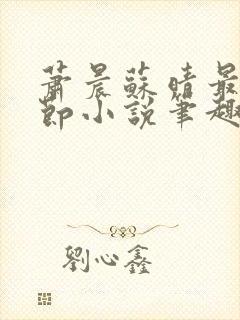 蕭晨蘇晴最
節小說筆趣
劉心鑫